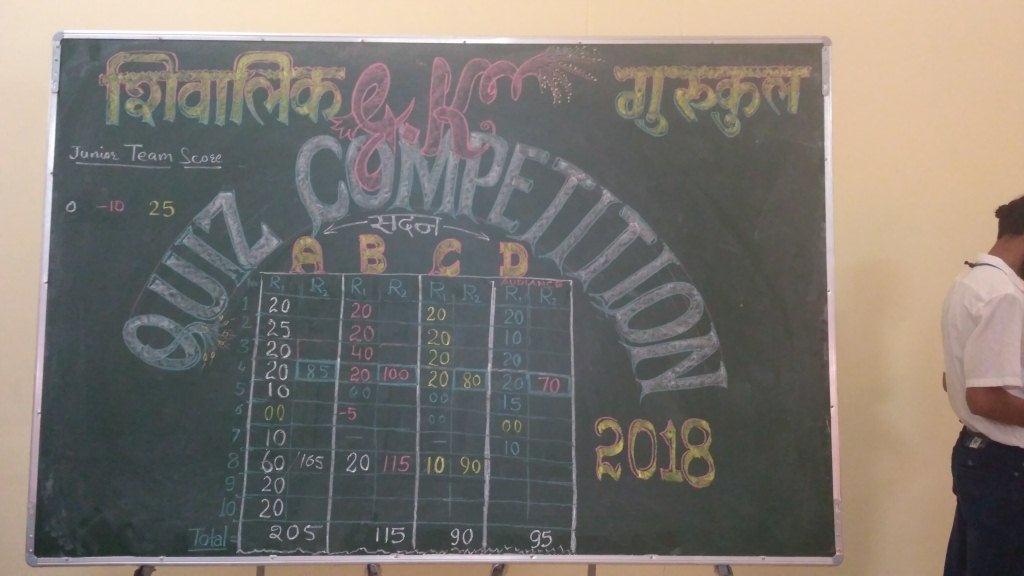 शिवालिक G.K. गुरुकुल
QUIZ COMPETITION
Junior Team Score
0 -10 25
← सदन →
A B C D
AUDIANCE
R1 R2 R1 R2 R1 R2 R1 R2
1 20 20 20 20
2 25 20 20 10
3 20 40 20 20
4 20 85 20 100 20 80 20 70
5 10 00 00 15
6 00 -5 00 00
7 10 — — 10
8 60 165 20 115 10 90
9 20
10 20
Total 205 115 90 95
2018